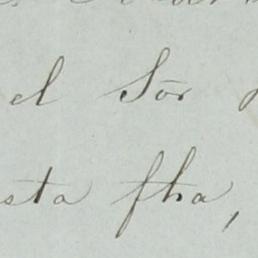 el Sõr
sta fha,